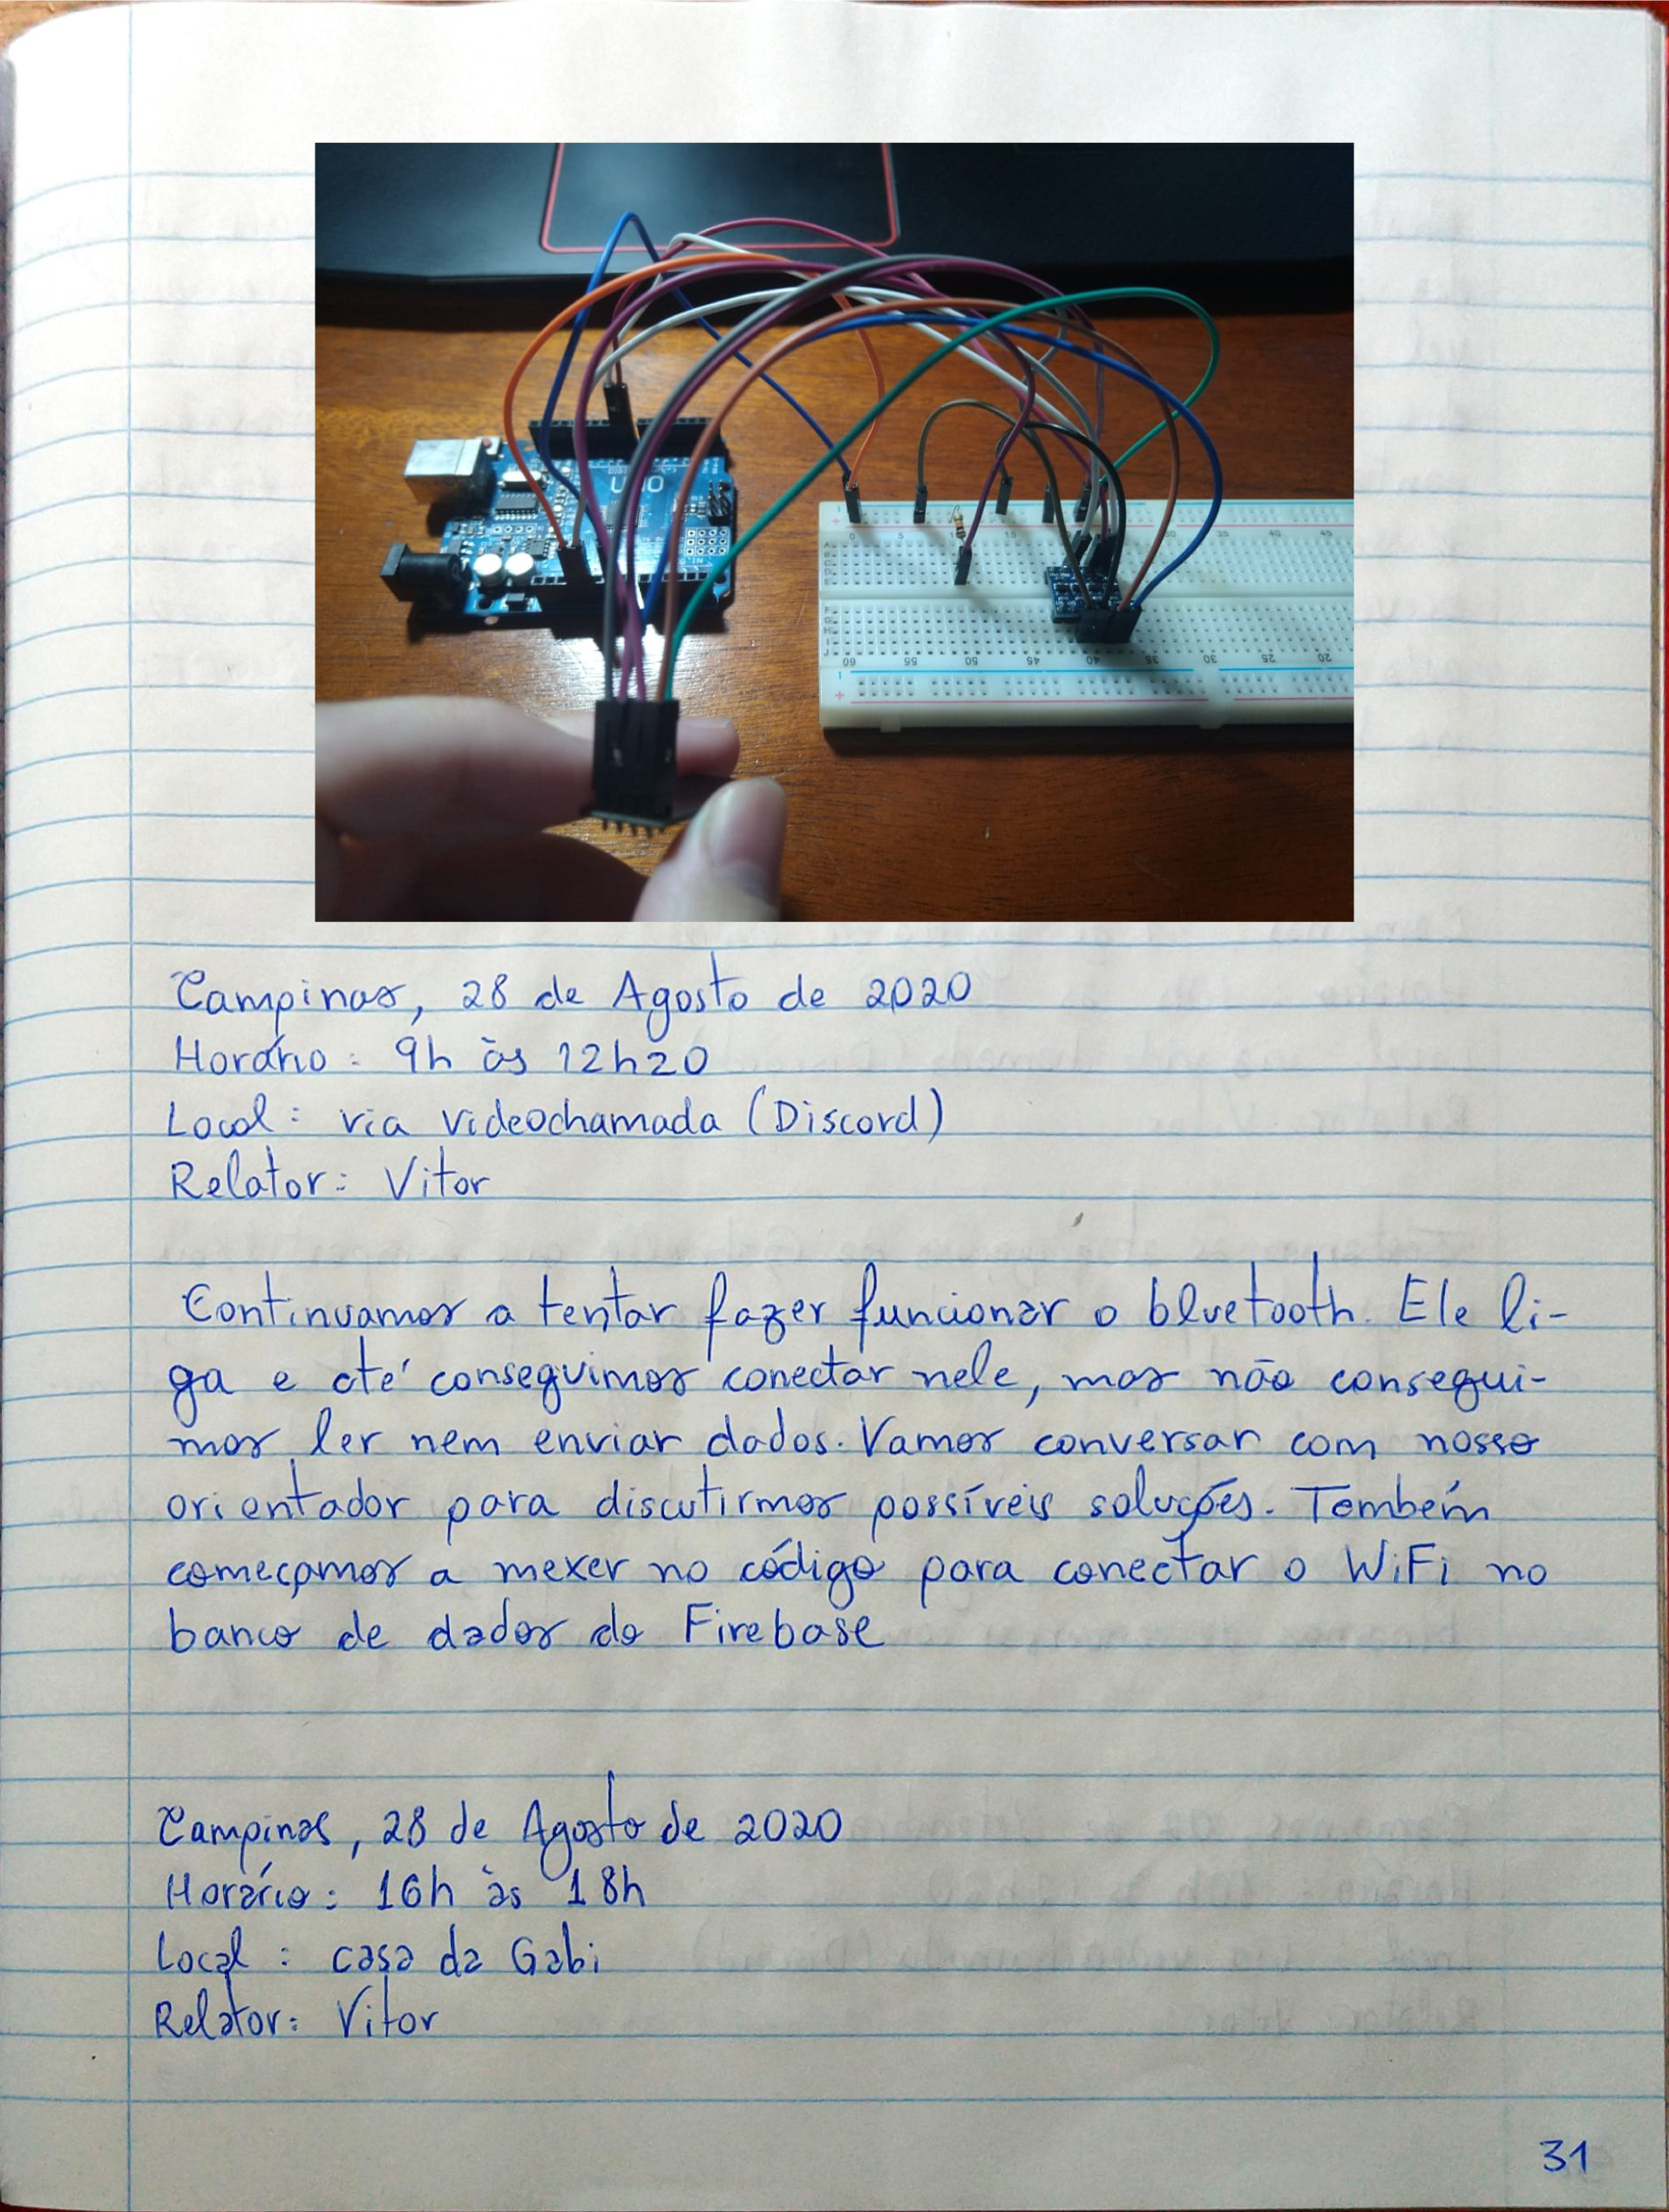 UNO
Campinas, 28 de Agosto de 2020
Horário: 9h às 12h20
Local: via videochamada (Discord)
Relator: Vitor
Continuamos a tentar fazer funcionar o bluetooth. Ele li-
ga e até conseguimos conectar nele, mas não consegui-
mos ler nem enviar dados. Vamos conversar com nosso
orientador para discutirmos possíveis soluções. Também
começamos a mexer no código para conectar o WiFi no
banco de dados do Firebase
Campinas, 28 de Agosto de 2020
Horário: 16h às 18h
Local: casa da Gabi
Relator: Vitor
31